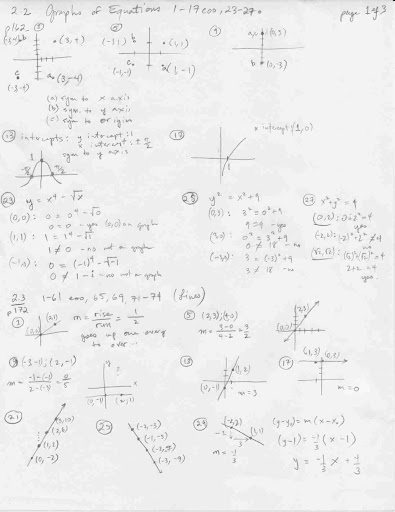 2.2 Graphs of Equations 1-17 eoo, 23-27
page 1 of 3
p162
(a) sym to x axis
(b) sym. to y axis
(c) sym to origin
(0,3)
(0,-3)
intercepts: y intercept: 1
sym to y axis
x intercept (1,0)
(23) y = x⁴ - √x
(0,0): 0 = 0⁴ - √0
0 = 0 - yes (0,0) on graph
(1,1): 1 = 1⁴ - √1
1 ≠ 0 - no not on graph
(-1,0): 0 = (-1)⁴ - √-1
0 ≠ 1 - i - no not on graph
(25) y² = x² + 9
(0,3): 3² = 0² + 9
9 = 9 - yes
(3,0): 0² = 3² + 9
0 ≠ 18 - no
(-3,0): 3 = (-3)² + 9
3 ≠ 18 - no
(27) x² + y² = 4
(0,2): 0² + 2² = 4
(-2,2): (-2)² + 2² ≠ 4
no
(√2, √2): (√2)² + √2² = 4
2 + 2 = 4
yes
2.3 1-61 eoo, 65, 69, 71-74 (lines)
p172
(1) (2,1) m = rise/run = 1/2
(0,0)
goes up one every
to over..
(5) (2,3); (4,0)
m = 3-0/4-2 = 3/2
(2,3)
(0,0)
(9) (-3,-1); (2,-1)
m = -1-(-1)/2-(-3) = 0/5
y
x
(0,-1) (2,-1)
(13) (1,2)
(0,-1) m = 3
(17) (1,3) (0,3)
m = 0
(21) (3,10)
(2,6)
(1,2)
(0,-2)
(25) (-2,-3)
(-1,-5)
(-3,-9)
(29) (1,1)
-2
3
m = -1/3
(y-y₀) = m(x-x₀)
(y-1) = -1/3 (x-1)
y = -1/3 x + 4/3